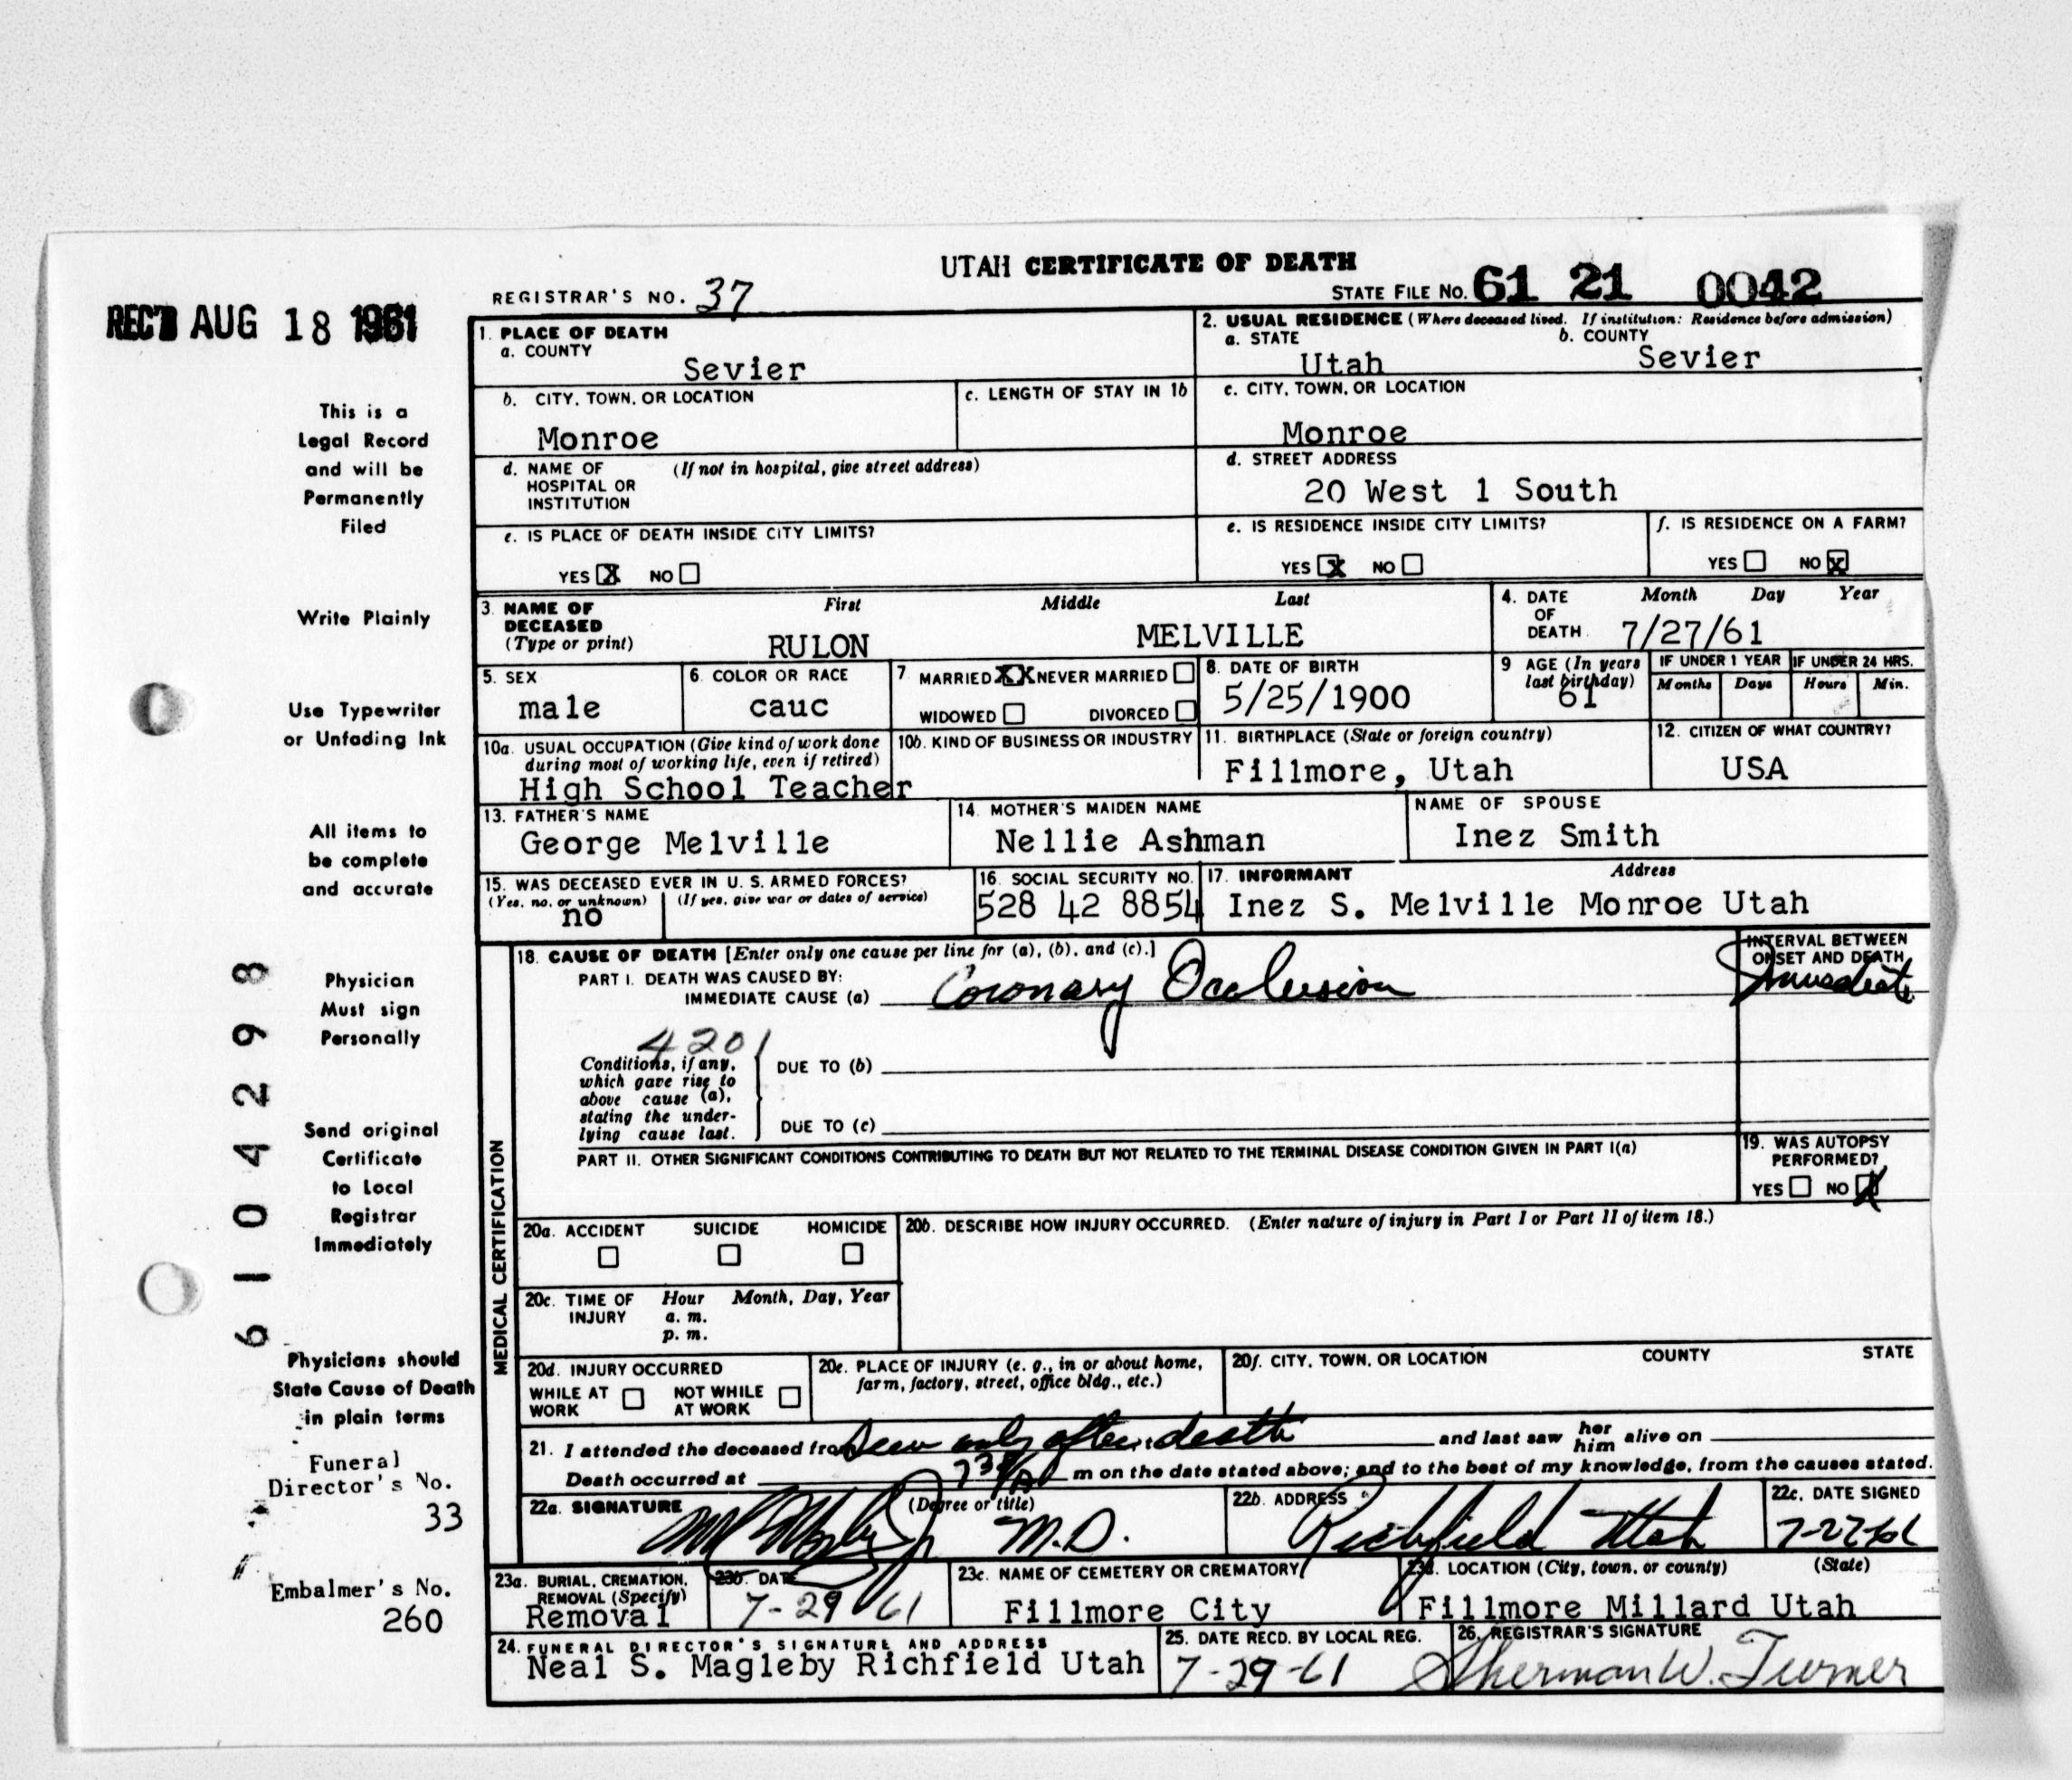 UTAH CERTIFICATE OF DEATH
REGISTRAR'S NO. 37
STATE FILE NO. 61 21 0042
REC'D AUG 18 1961
This is a
Legal Record
and will be
Permanently
Filed
Write Plainly
Use Typewriter
or Unfading Ink
All items to
be complete
and accurate
Physician
Must sign
Personally
Send original
Certificate
to Local
Registrar
Immediately
Physicians should
State Cause of Death
in plain terms
Funeral
Director's No.
33
Embalmer's No.
260
6104298
1. PLACE OF DEATH
a. COUNTY
Sevier
2. USUAL RESIDENCE (Where deceased lived. If institution: Residence before admission)
a. STATE b. COUNTY
Utah Sevier
b. CITY, TOWN, OR LOCATION
Monroe
c. LENGTH OF STAY IN 1b
c. CITY, TOWN, OR LOCATION
Monroe
d. NAME OF (If not in hospital, give street address)
HOSPITAL OR
INSTITUTION
d. STREET ADDRESS
20 West 1 South
e. IS PLACE OF DEATH INSIDE CITY LIMITS?
YES X NO
e. IS RESIDENCE INSIDE CITY LIMITS?
YES X NO
f. IS RESIDENCE ON A FARM?
YES NO X
3. NAME OF First Middle Last
DECEASED
(Type or print) RULON MELVILLE
4. DATE Month Day Year
OF
DEATH 7/27/61
5. SEX
male
6. COLOR OR RACE
cauc
7 MARRIED XX NEVER MARRIED
WIDOWED DIVORCED
8. DATE OF BIRTH
5/25/1900
9 AGE (In years
last birthday)
61
IF UNDER 1 YEAR
Months Days
IF UNDER 24 HRS.
Hours Min.
10a. USUAL OCCUPATION (Give kind of work done
during most of working life, even if retired)
High School Teacher
10b. KIND OF BUSINESS OR INDUSTRY
11. BIRTHPLACE (State or foreign country)
Fillmore, Utah
12. CITIZEN OF WHAT COUNTRY?
USA
13. FATHER'S NAME
George Melville
14. MOTHER'S MAIDEN NAME
Nellie Ashman
NAME OF SPOUSE
Inez Smith
15. WAS DECEASED EVER IN U. S. ARMED FORCES?
(Yes, no, or unknown) (If yes, give war or dates of service)
no
16. SOCIAL SECURITY NO.
528 42 8854
17. INFORMANT Address
Inez S. Melville Monroe Utah
MEDICAL CERTIFICATION
18. CAUSE OF DEATH [Enter only one cause per line for (a), (b), and (c).]
PART I. DEATH WAS CAUSED BY:
IMMEDIATE CAUSE (a) Coronary Occlusion
INTERVAL BETWEEN
ONSET AND DEATH
Immediate
4201
Conditions, if any,
which gave rise to
above cause (a),
stating the under-
lying cause last.
DUE TO (b)
DUE TO (c)
PART II. OTHER SIGNIFICANT CONDITIONS CONTRIBUTING TO DEATH BUT NOT RELATED TO THE TERMINAL DISEASE CONDITION GIVEN IN PART I(a)
19. WAS AUTOPSY
PERFORMED?
YES NO X
20a. ACCIDENT SUICIDE HOMICIDE
20b. DESCRIBE HOW INJURY OCCURRED. (Enter nature of injury in Part I or Part II of item 18.)
20c. TIME OF Hour Month, Day, Year
INJURY a. m.
p. m.
20d. INJURY OCCURRED
WHILE AT WORK NOT WHILE AT WORK
20e. PLACE OF INJURY (e. g., in or about home,
farm, factory, street, office bldg., etc.)
20f. CITY, TOWN, OR LOCATION COUNTY STATE
21. I attended the deceased from Seen only after death and last saw her him alive on
Death occurred at 7 30 A m on the date stated above; and to the best of my knowledge, from the causes stated.
22a. SIGNATURE (Degree or title)
M.D.
22b. ADDRESS
Richfield Utah
22c. DATE SIGNED
7-27-61
23a. BURIAL, CREMATION,
REMOVAL (Specify)
Removal
23b. DATE
7-29-61
23c. NAME OF CEMETERY OR CREMATORY
Fillmore City
23d. LOCATION (City, town, or county) (State)
Fillmore Millard Utah
24. FUNERAL DIRECTOR'S SIGNATURE AND ADDRESS
Neal S. Magleby Richfield Utah
25. DATE RECD. BY LOCAL REG.
7-29-61
26. REGISTRAR'S SIGNATURE
Sherman W. Turner